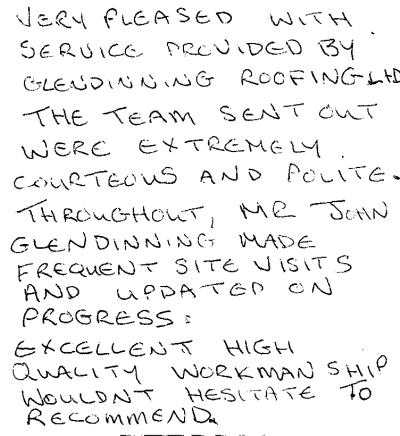 VERY PLEASED WITH
SERVICE PROVIDED BY
GLENDINNING ROOFING LTD
THE TEAM SENT OUT
WERE EXTREMELY
COURTEOUS AND POLITE.
THROUGHOUT, MR JOHN
GLENDINNING MADE
FREQUENT SITE VISITS
AND UPDATED ON
PROGRESS:
EXCELLENT HIGH
QUALITY WORKMANSHIP
WOULDNT HESITATE TO
RECOMMEND.